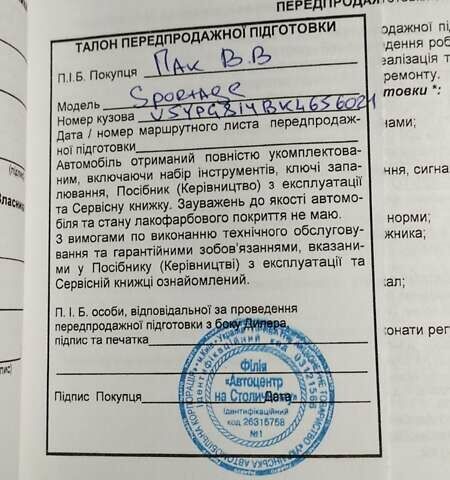 ПЕРЕДПРОДАЖ
ТАЛОН ПЕРЕДПРОДАЖНОЇ ПІДГОТОВКИ
П.І.Б. Покупця Пак В.В
Модель Sportage
Номер кузова
Дата / номер маршрутного листа передпродаж-
ної підготовки
Автомобіль отриманий повністю укомплектова-
ним, включаючи набір інструментів, ключі запа-
лювання, Посібник (Керівництво) з експлуатації
та Сервісну книжку. Зауважень до якості автомо-
біля та стану лакофарбового покриття не маю.
З вимогами по виконанню технічного обслугову-
вання та гарантійними зобов'язаннями, вказани-
ми у Посібнику (Керівництві) з експлуатації та
Сервісній книжці ознайомлений.
П. І. Б. особи, відповідальної за проведення
передпродажної підготовки з боку Дилера,
підпис та печатка
Підпис Покупця Дата
Філія
«Автоцентр
на Столичному»
Ідентифікаційний
код 26315758
№1
Ідентифікаційний код 03121566
УКРАЇНСЬКА АВТОМОБІЛЬНА КОРПОРАЦІЯ
одажної пі
дення роб
еалізація т
ремонту.
товки *:
нами;
ння, сигна
норми;
жника;
кал;
конати рег